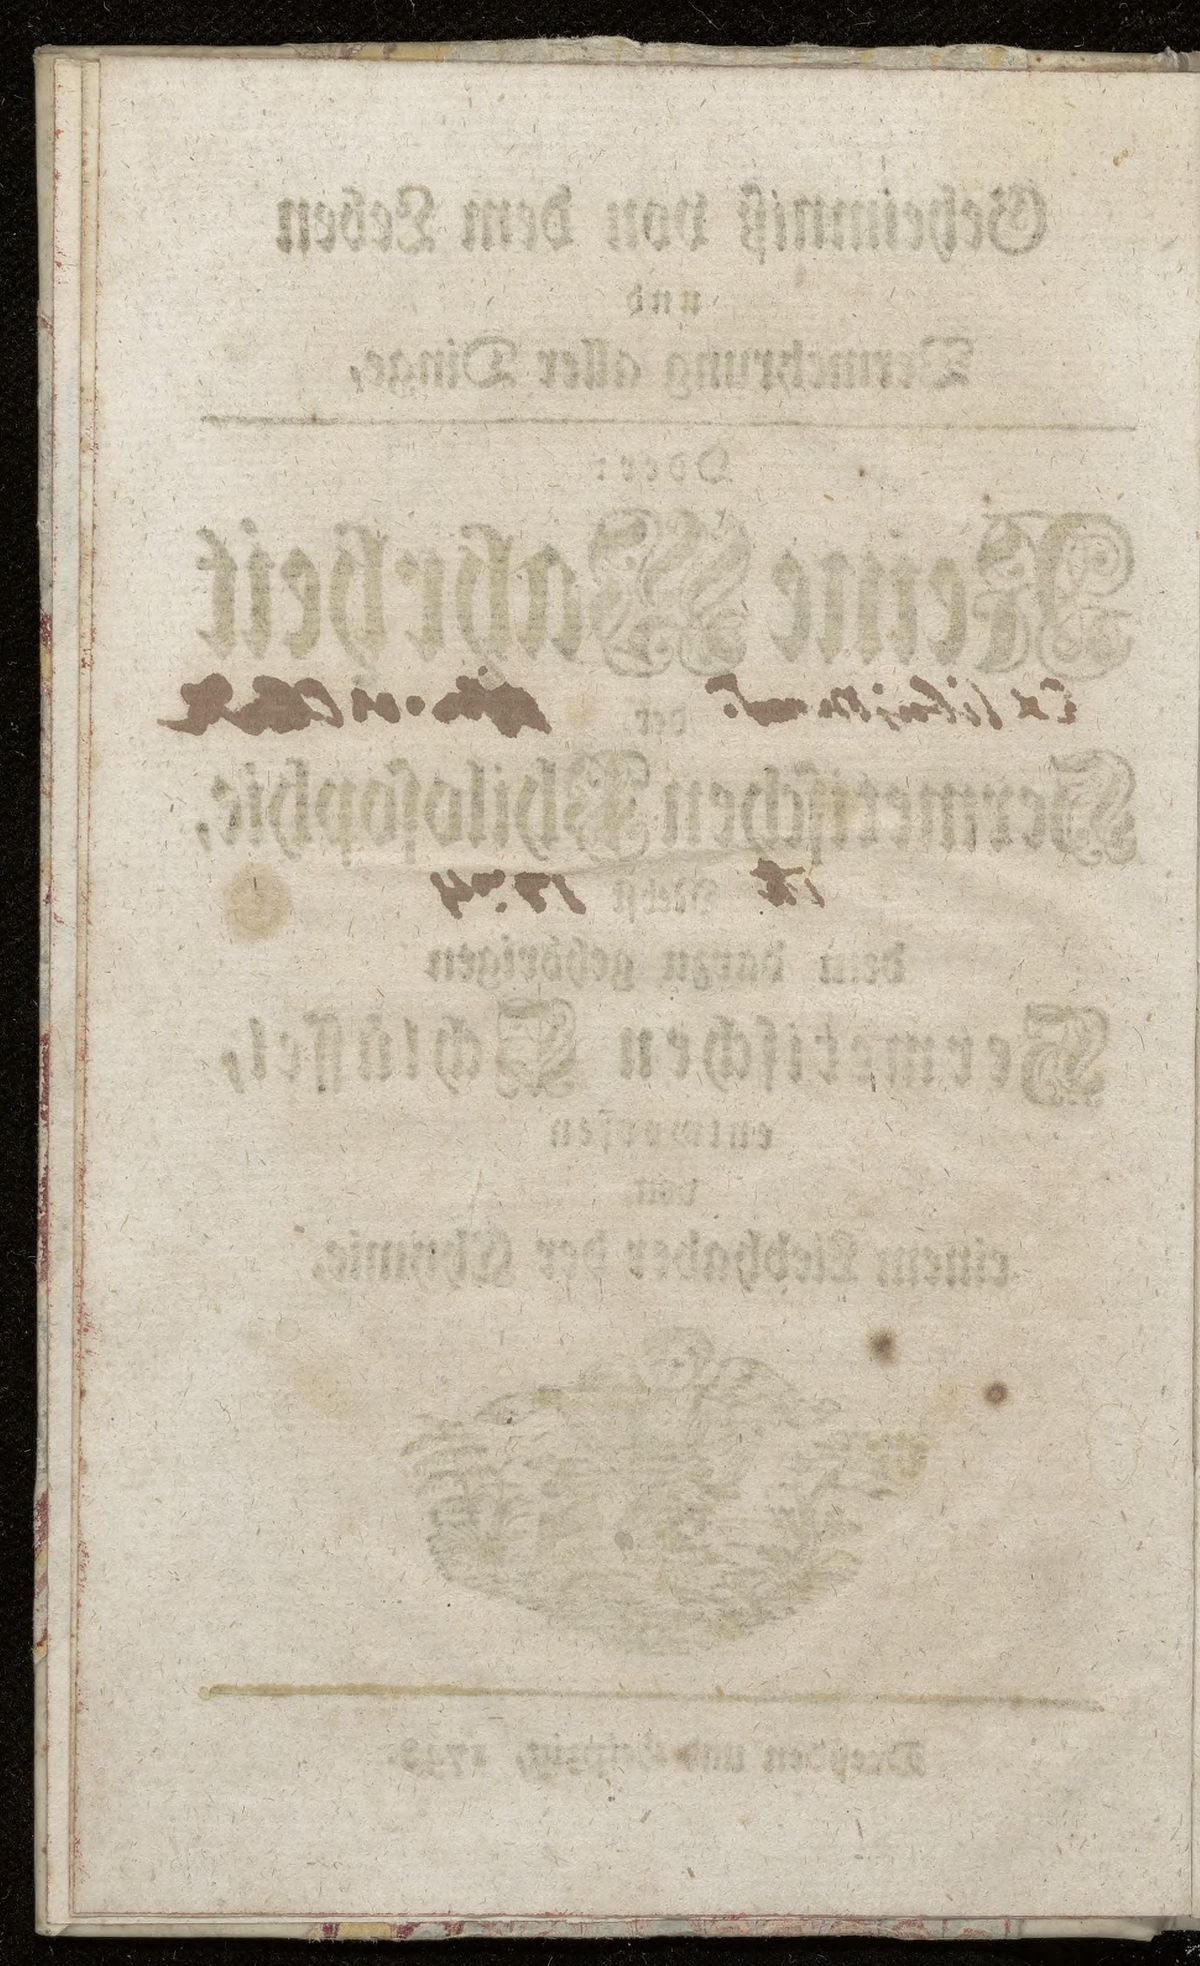 Geheimniß von dem Leben
und
Vermehrung aller Dinge,
Oder:
Reine Wahrheit
der
Hermetischen Philosophie,
Nebst
dem darzu gehörigen
Hermetischen Schlüssel,
entworfen
von
einem Liebhaber der Chymie.
Dreßden und Leipzig,